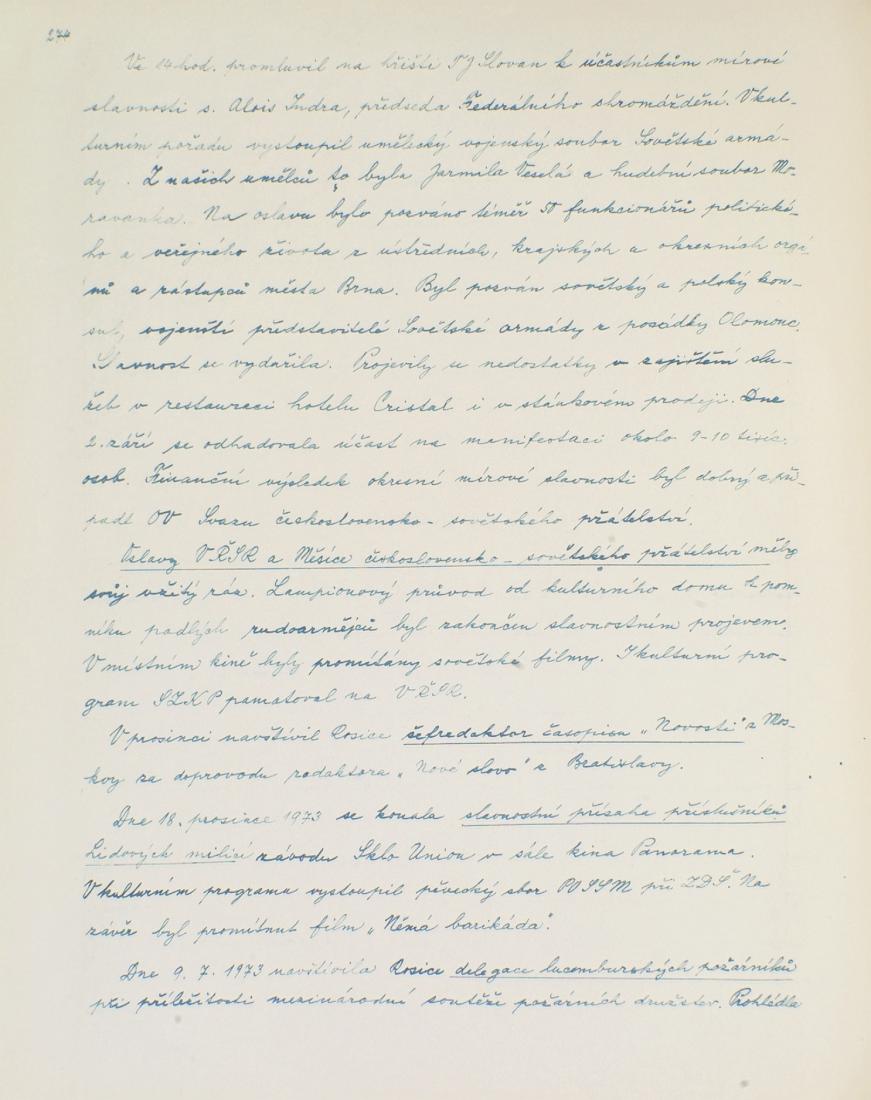 274
Ve 14 hod. promluvil na hřišti TJ Slovan k účastníkům mírové
slavnosti s. Alois Indra, předseda Federálního shromáždění. V kul-
turním pořadu vystoupil umělecký vojenský soubor Sovětské armá-
dy. Z našich umělců to byla Jarmila Veselá a hudební soubor Mo-
ravanka. Na oslavu bylo pozváno téměř 50 funkcionářů politické-
ho a veřejného života z ústředních, krajských a okresních orgá-
nů a zástupců města Brna. Byl pozván sovětský a polský kon-
sul, vojenští představitelé Sovětské armády z posádky Olomouc.
Slavnost se vydařila. Projevily se nedostatky v zajištění slu-
žeb v restauraci hotelu Cristal i v stánkovém prodeji. Dne
2. září se odhadovala účast na manifestaci okolo 9-10 tisíc
osob. Finanční výsledek okresní mírové slavnosti byl dobrý a při-
padl OV Svazu československo-sovětského přátelství.
Oslavy VŘSR a Měsíce československo-sovětského přátelství měly
svůj vžitý ráz. Lampionový průvod od kulturního domu k pom-
níku padlých rudoarmějců byl zakončen slavnostním projevem.
V místním kině byly promítány sovětské filmy. I kulturní pro-
gram SZKP pamatoval na VŘSR.
V prosinci navštívil Rosice šefredaktor časopisu „Novosti" z Mos-
kvy za doprovodu redaktora „Nové slovo" z Bratislavy.
Dne 18. prosince 1973 se konala slavnostní přísaha příslušníků
Lidových milicí závodu Sklo Union v sále kina Panorama.
V kulturním programu vystoupil pěvecký sbor PO SSM při ZDŠ. Na
závěr byl promítnut film „Němá barikáda".
Dne 9. 7. 1973 navštívila Rosice delegace lucemburských požárníků
při příležitosti mezinárodní soutěže požárních družstev. Prohlédla